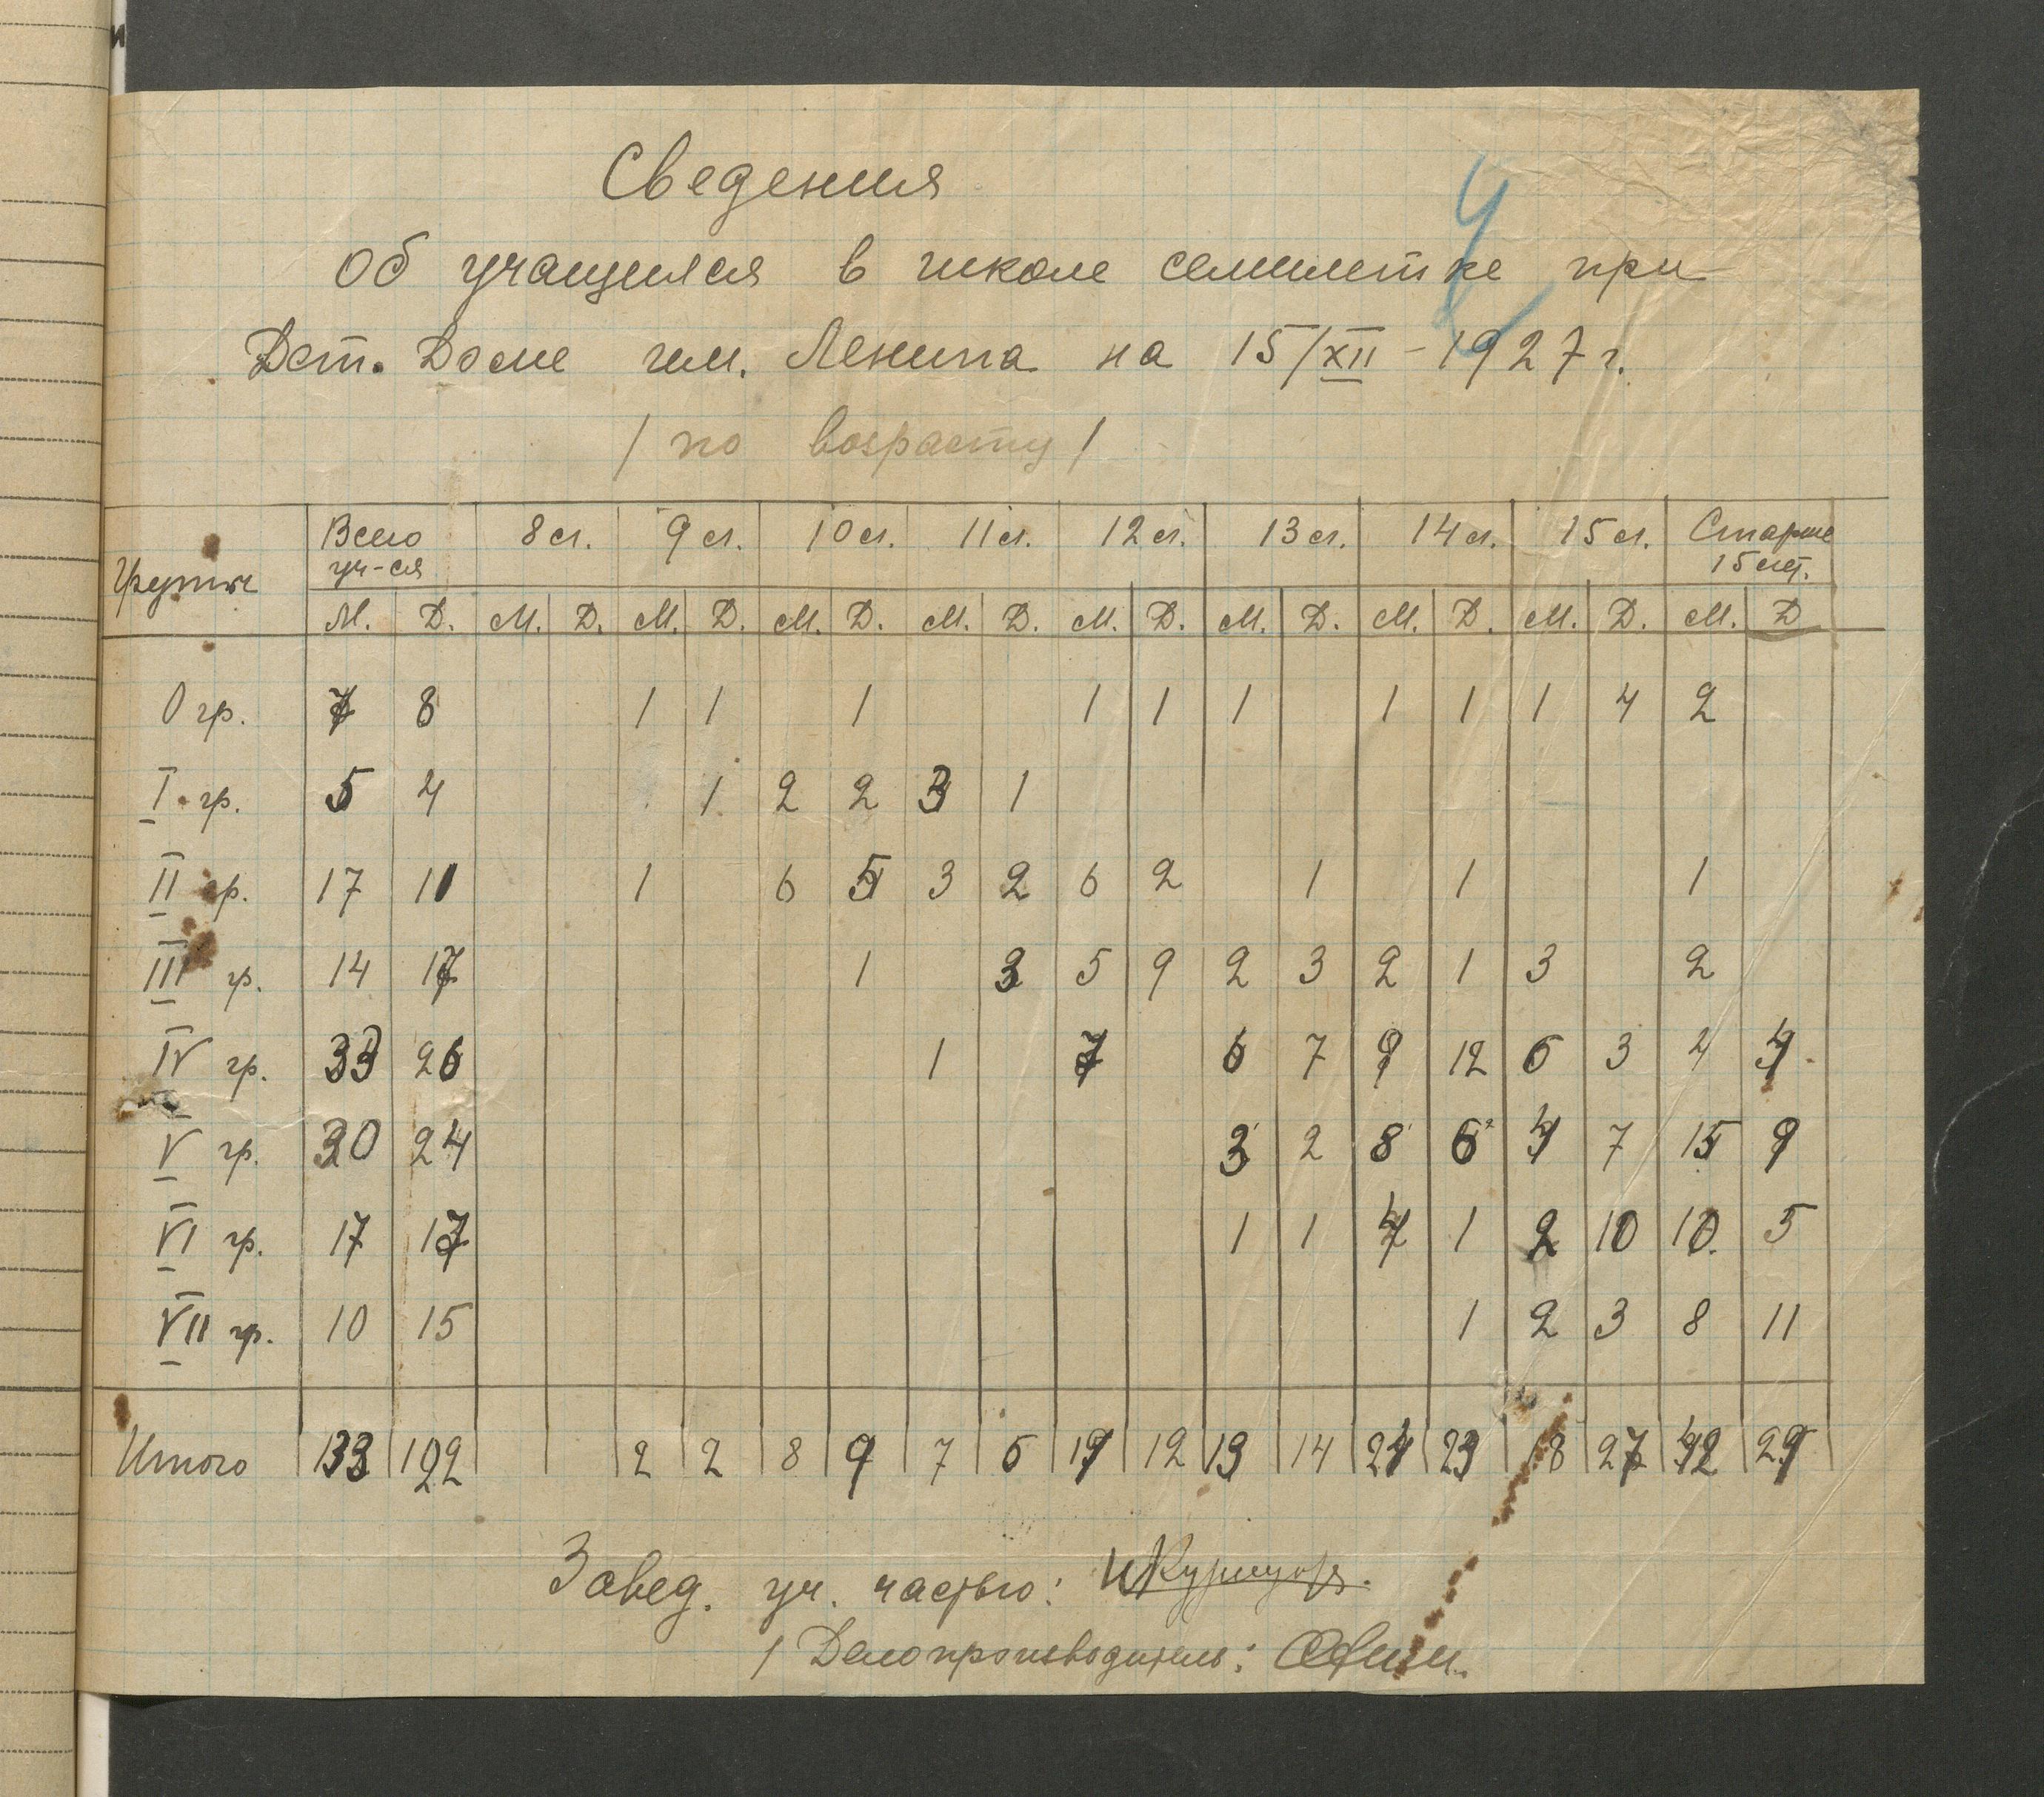 Сведения
Об учащихся в школе семилетке при
Дет. Доме им. Ленина на 15/XII - 1927 г.
/ по возрасту /
Группы Всего уч-ся 8 л. 9 л. 10 л. 11 л. 12 л. 13 л. 14 л. 15 л. Старше 15 лет.
М. Д. М. Д. М. Д. М. Д. М. Д. М. Д. М. Д. М. Д. М. Д. М. Д
0 гр. 7 8 1 1 1 1 1 1 1 1 1 4 2
I гр. 5 4 1 2 2 3 1
II гр. 17 11 1 6 5 3 2 6 2 1 1 1
III гр. 14 17 1 3 5 9 2 3 2 1 3 2
IV гр. 33 26 1 7 6 7 9 12 6 3 4 4
V гр. 30 24 3 2 8 6 4 7 15 9
VI гр. 17 17 1 1 4 1 2 10 10 5
VII гр. 10 15 1 2 3 8 11
Итого 133 122 2 2 8 9 7 6 19 12 13 14 24 23 18 27 42 29
Завед. уч. частью:
/ Делопроизводитель:
4